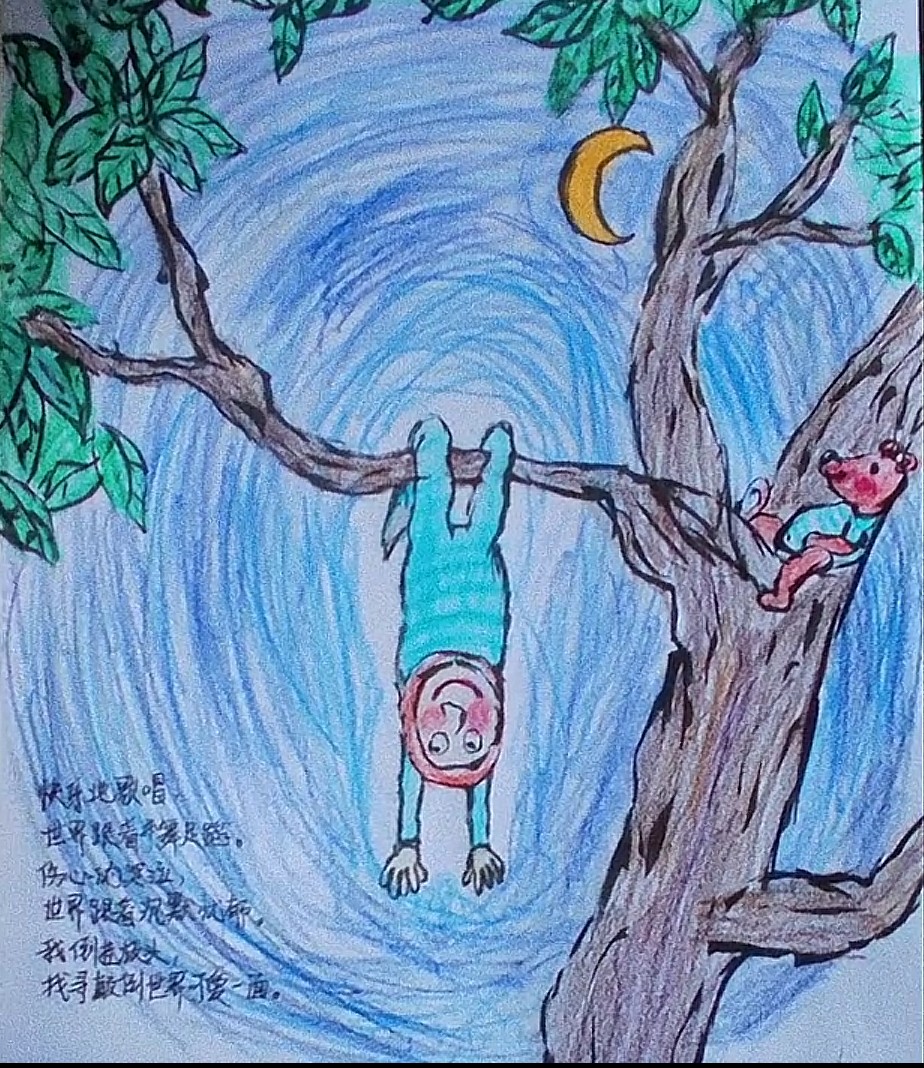 快乐地歌唱
世界跟着手舞足蹈。
伤心地哭泣,
世界跟着沉默忧郁。
我倒在枝头,
找寻颠倒世界不变一面。